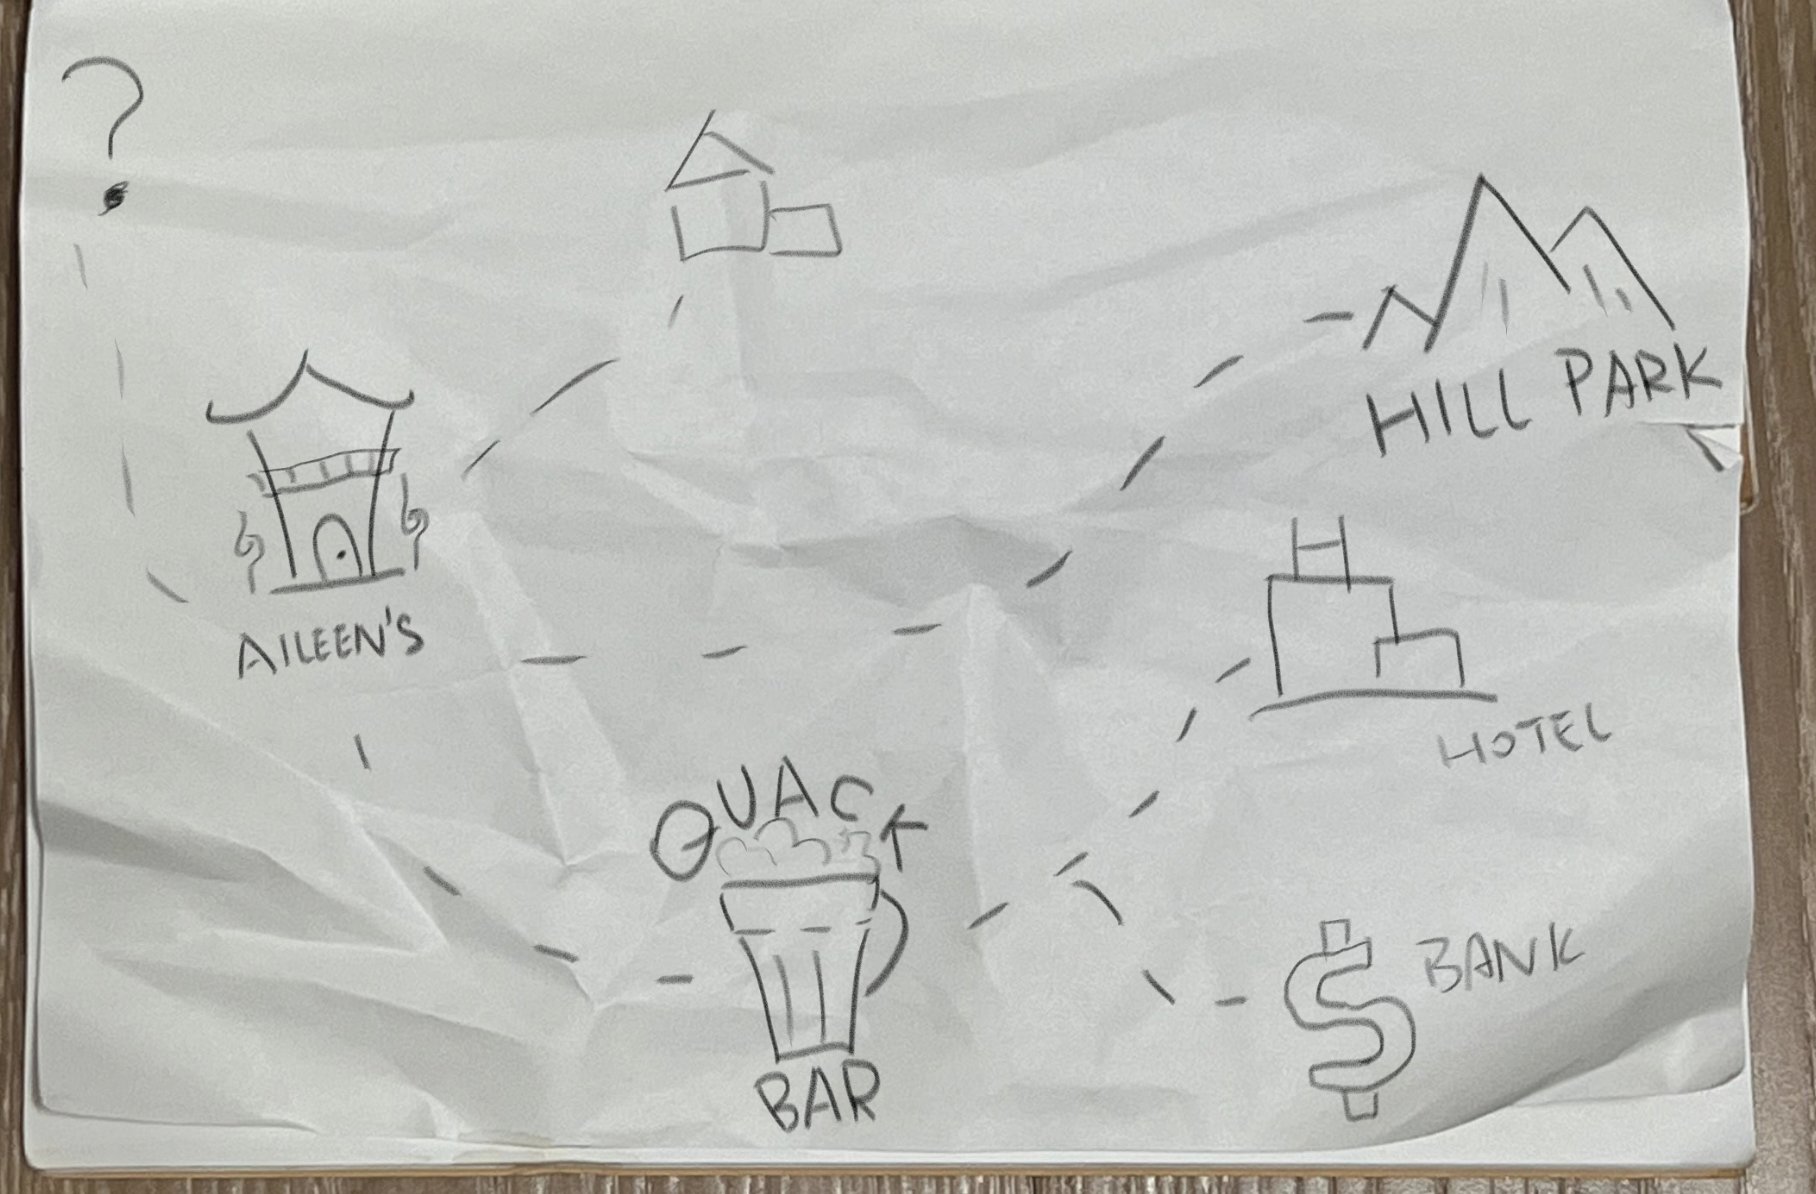 ?
HILL PARK
H
AILEEN'S
HOTEL
QUACK
BANK
BAR